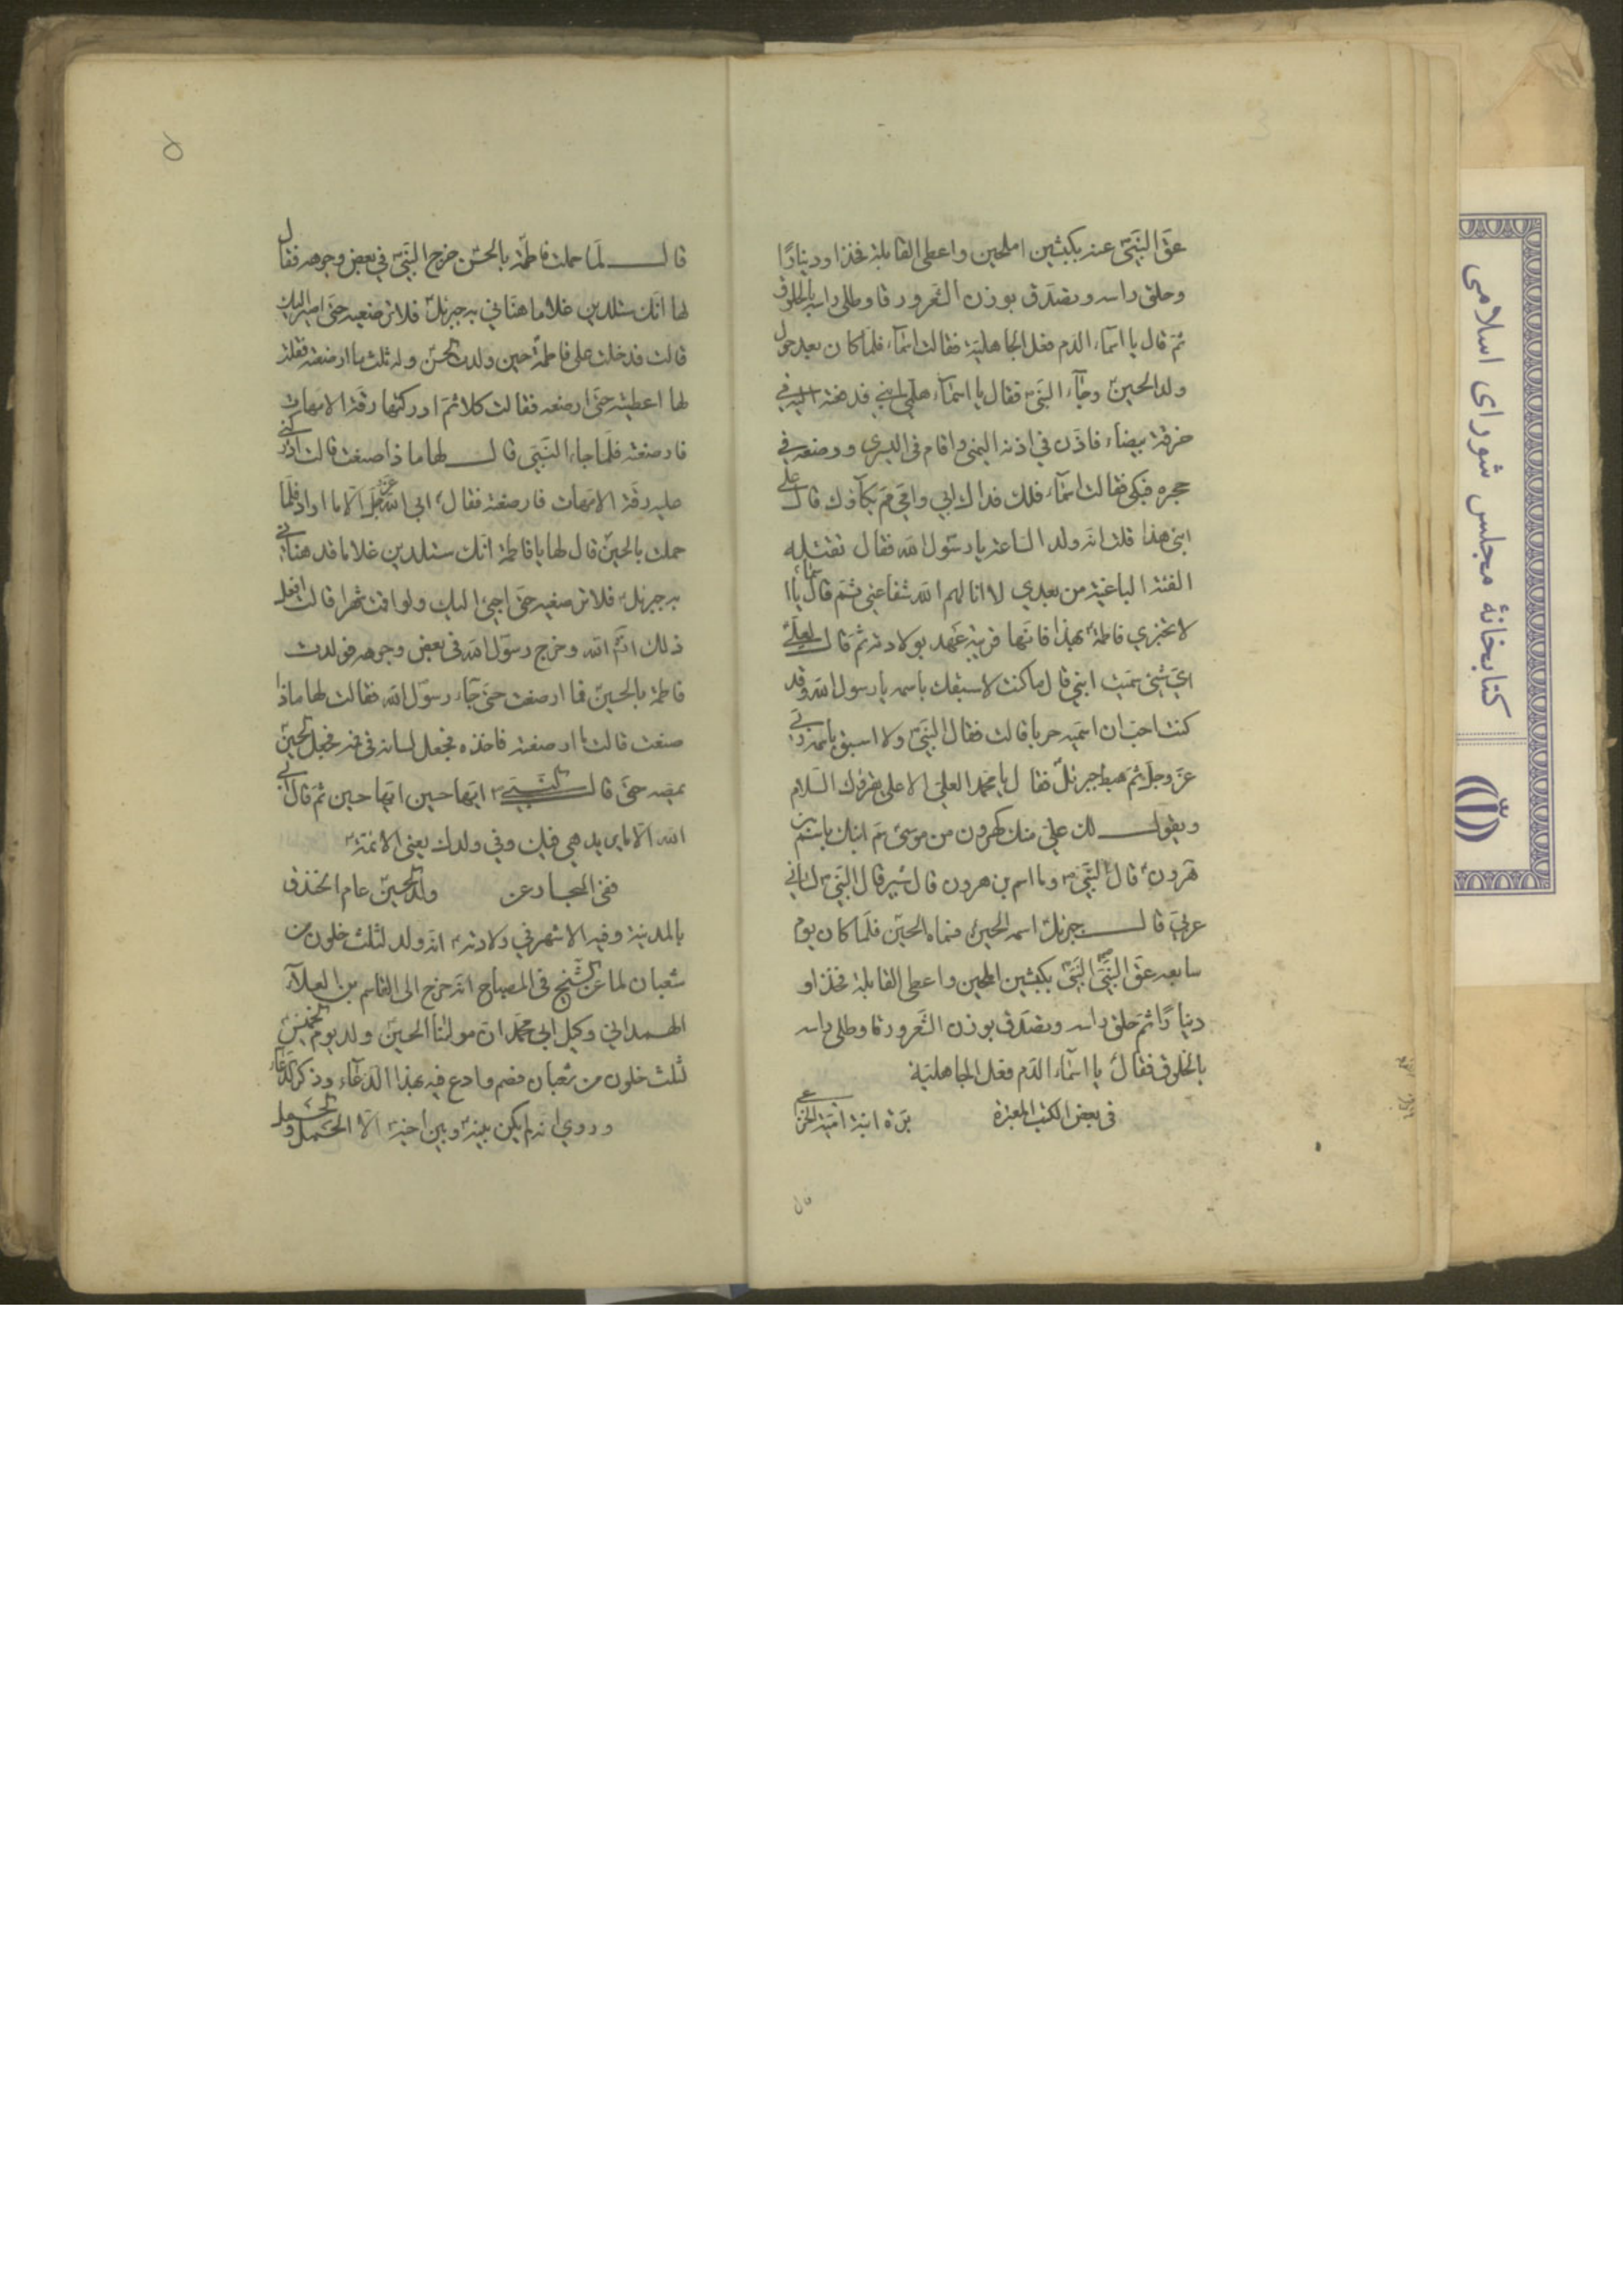 عق النبی عنه بکبشین املحین واعطی القابلة فخذا ودینارًا
وحلق راسه وتصدق بوزن الشعر ورقا وطلی راسه بالخلوق
ثم قال یا اسماء الدم فعل الجاهلیة فقالت اسماء فلما کان بعد حول
ولد الحسین وجاء النبی فقال یا اسماء هلمی ابنی فدفعته الیه فی
خرقة بیضاء فاذن فی اذنه الیمنی واقام فی الیسری ووضعه فی
حجره فبکی فقالت اسماء قلت فداک ابی وامی مم بکاؤک قال علی
ابنی هذا قلت انه ولد الساعة یا رسول الله فقال تقتله
الفئة الباغیة من بعدی لا انالهم الله شفاعتی ثم قال یا اسماء
لا تخبری فاطمة بهذا فانها قریبة عهد بولادته ثم قال لعلی
ای شیء سمیت ابنی قال ما کنت لاسبقک باسمه یا رسول الله وقد
کنت احب ان اسمیه حربا قالت فقال النبی ولا اسبق باسمه ربی
عز وجل ثم هبط جبرئیل فقال یا محمد العلی الاعلی یقرئک السلام
ویقول لک علی منک کهرون من موسی سم ابنک باسم بن
هرون قال النبی وما اسم بن هرون قال شبیر قال النبی لسانی
عربی قال جبرئیل اسمه الحسین فسماه الحسین فلما کان یوم
سابعه عق النبی النبی بکبشین املحین واعطی القابلة فخذا و
دینارًا ثم حلق راسه وتصدق بوزن الشعر ورقا وطلی راسه
بالخلوق فقال یا اسماء الدم فعل الجاهلیة
فی بعض الکتب المعتبرة برة ابنة امیة الخزاعی
قال لما حملت فاطمة بالحسن خرج النبی فی بعض وجوهه فقال
لها انک ستلدین غلاما هنانی به جبرئیل فلا ترضعیه حتی اصیر الیک
قالت فدخلت علی فاطمة حین ولدت الحسن وله ثلث ما ارضعته فقلت
لها اعطینیه حتی ارضعه فقالت کلا ثم ادرکتها رقة الامهات
فارضعته فلما جاء النبی قال لها ماذا صنعت قالت ادرکنی
علیه رقة الامهات فارضعته فقال ابی الله عز وجل الا ما اراد فلما
حملت بالحسین قال لها یا فاطمة انک ستلدین غلاما قد هنانی
به جبرئیل فلا ترضعیه حتی اجیء الیک ولو اقمت شهرا قالت افعل
ذلک ان شاء الله وخرج رسول الله فی بعض وجوهه فولدت
فاطمة بالحسین فما ارضعت حتی جاء رسول الله فقالت لها ماذا
صنعت قالت ما ارضعته فاخذه فجعل لسانه فی فیه فجعل الحسین
یمصه حتی قال النبی ایها حسین ایها حسین ثم قال ابی
الله الا ما یرید هی فیک وفی ولدک یعنی الائمة
ففی البحار عن ولد الحسین عام الخندق
بالمدینة وفیه الاشهر فی ولادته انه ولد لثلث خلون من
شعبان لما عن الشیخ فی المصباح انه خرج الی القاسم بن العلاء
الهمدانی وکیل ابی محمد ان مولانا الحسین ولد یوم الخمیس
لثلث خلون من شعبان فصم وادع فیه بهذا الدعاء وذکر الدعاء
وروی انه لم یکن بینه وبین اخیه الا الحمل والحمل
۵